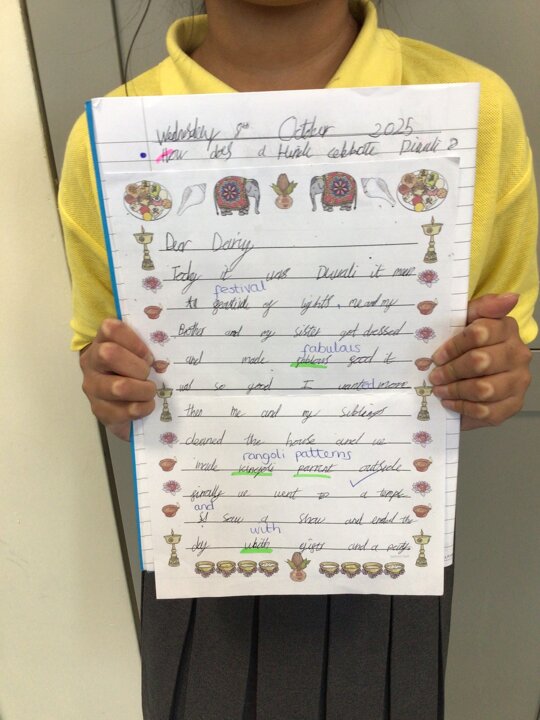 Wednesday 8th October 2025
How does a Hindu celebrate Diwali?
Dear Dairy
Today it was Diwali it
festival
of lights, me and my
Brother and my sister got dressed
fabulais
and made good it
was so good I wanted more
then me and my siblings
cleaned the house and we
rangoli patterns
made rangoli parrent outside
finally we went to a temple
and
saw a show and ended the
with
day whith gifts and a party